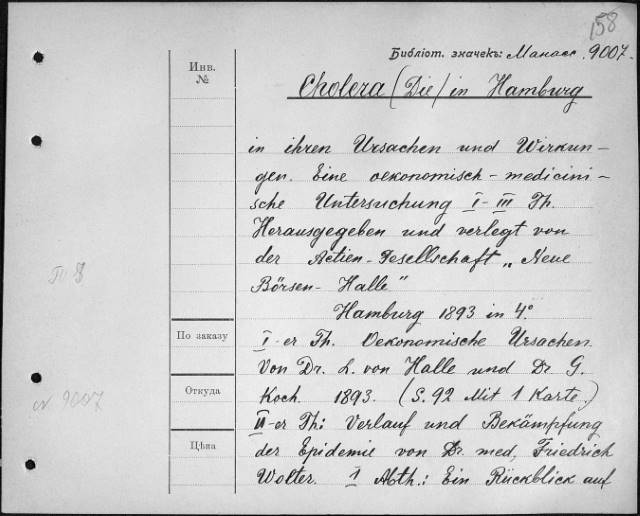 158
Библiот. значекъ: Манасс. 9007.
Инв.
№
Cholera (Die) in Hamburg
in ihren Ursachen und Wirkun-
gen. Eine oekonomisch-medicini-
sche Untersuchung I-III Th.
Herausgegeben und verlegt von
der Actien-Gesellschaft „Neue
Börsen-Halle"
Hamburg 1893 in 4°
По заказу
I-er Th. Oekonomische Ursachen.
Von Dr. L. von Halle und Dr. G.
Откуда
Koch. 1893. (S. 92 Mit 1 Karte.)
II-er Th: Verlauf und Bekämpfung
Цѣна
der Epidemie von Dr. med, Friedrich
Wolter. 1 Abth.: Ein Rückblick auf
9007